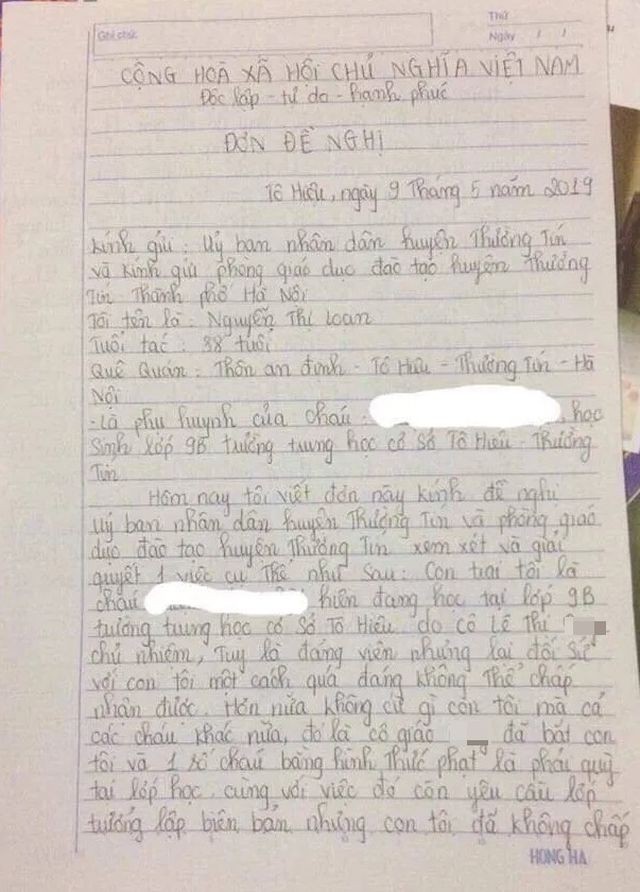 Ghi chú:
Thứ
Ngày / /
CỘNG HOÀ XÃ HỘI CHỦ NGHĨA VIỆT NAM
Độc lập - tự do - hạnh phúc
ĐƠN ĐỀ NGHỊ
Tô Hiệu, ngày 9 Tháng 5 năm 2019
Kính gửi: Uỷ ban nhân dân huyện Thường Tín
và kính gửi phòng giáo dục đào tạo huyện Thường
Tín - Thành phố Hà Nội
Tôi tên là: Nguyễn Thị Loan
Tuổi tác: 38 tuổi
Quê Quán: Thôn an định - Tô Hiệu - Thường Tín - Hà
Nội
- Là phụ huynh của cháu. học
Sinh lớp 9B tường trung học cơ Sở Tô Hiệu - Thường
Tín
Hôm nay tôi viết đơn này kính đề nghị
uỷ ban nhân dân huyện Thường Tín và phòng giáo
dục đào tạo huyện Thường Tín xem xét và giải
quyết 1 việc cụ Thể như Sau: Con trai tôi là
cháu hiện đang học tại lớp 9B
tường trung học cơ Sở Tô Hiệu do cô Lê Thị
chủ nhiệm, Tuy là đảng viên nhưng lại đối Sử
với con tôi một cách quá đáng không Thể chấp
nhận được. Hơn nữa không cứ gì con tôi mà cả
các cháu khác nữa, đó là cô giáo đã bắt con
tôi và 1 số cháu bằng hình Thức phạt là phải quỳ
tại lớp học. cùng với việc đó còn yêu cầu lớp
tưởng lập biên bản nhưng con tôi đã không chấp
HONG HA